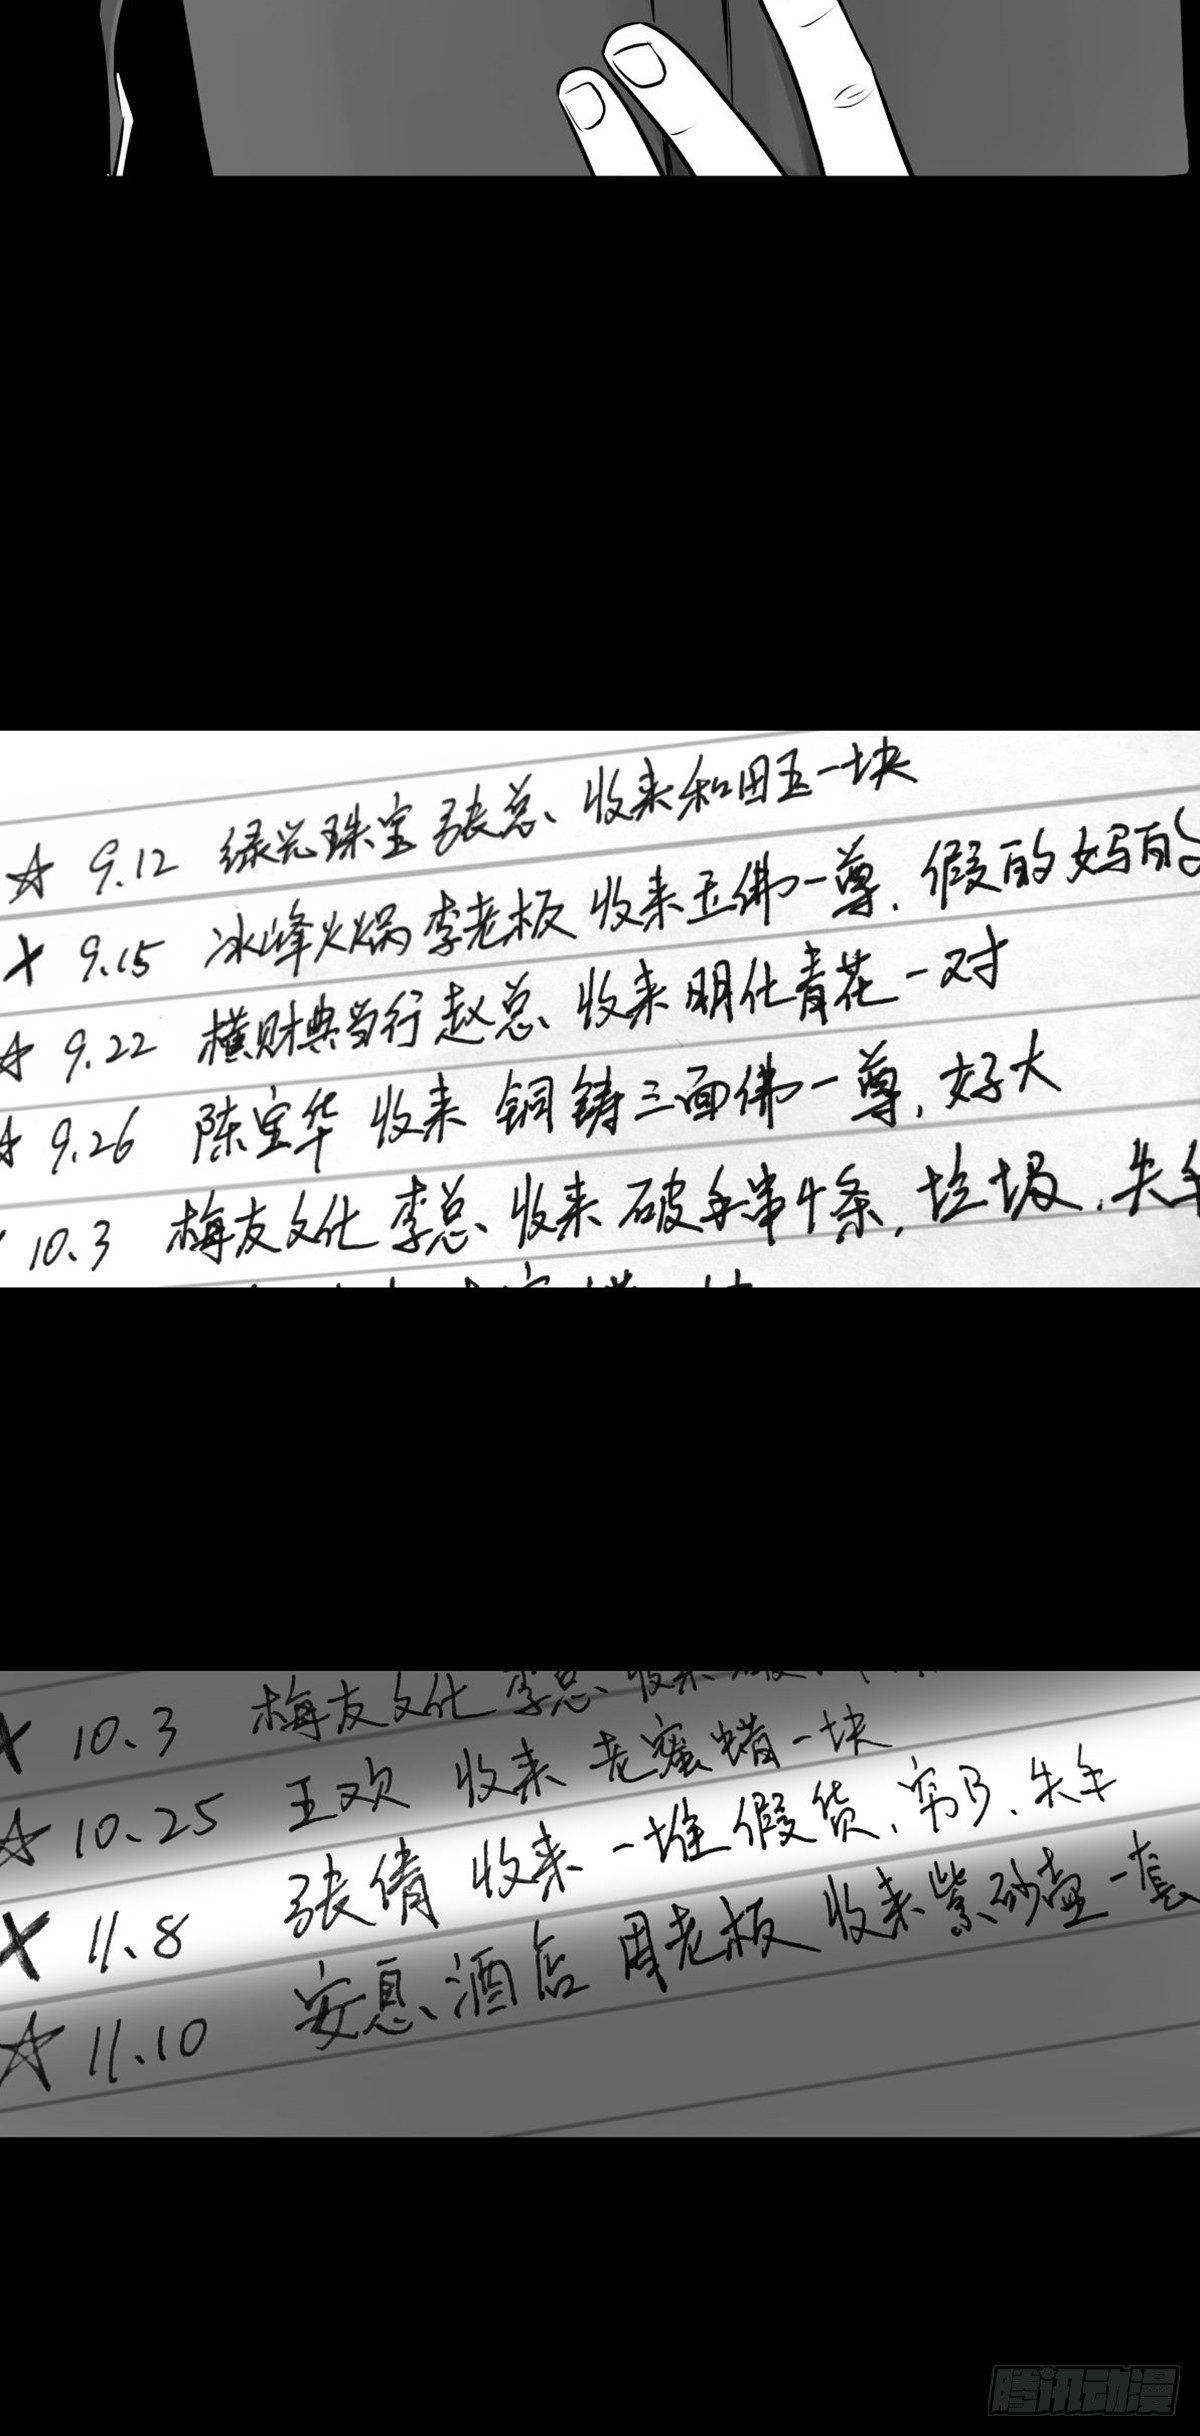 ☆ 9.12 绿光珠宝 张总、收来和田玉一块
X 9.15 冰峰火锅 李老板 收来玉佛一尊, 假的妈的
☆ 9.22 横财典当行 赵总、收来 明代青花一对
☆ 9.26 陈宝华 收来 铜铸三面佛一尊, 好大
10.3 梅友文化 李总、收来 破手串4条, 垃圾, 失手
X 10.3 梅友文化 李总、收来
☆ 10.25 王欢 收来 老蜜蜡一块
X 11.8 张倩 收来 一堆假货, 穷B、失手
☆ 11.10 安息、酒店 周老板 收来紫砂壶一套
腾讯动漫